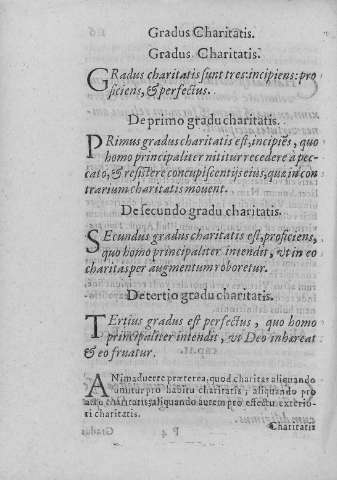 Gradus Charitatis.
Gradus Charitatis.
GRadus charitatis ſunt tres: incipiens: pro
ficiens, & perfectus.
De primo gradu charitatis.
PRimus gradus charitatis eſt, incipiẽs, quo
homo principaliter nititur recedere à pec-
cato, & reſiſtere concupiſcentijs eius, quæ in con
trarium charitatis mouent.
De ſecundo gradu charitatis.
SEcundus gradus charitatis eſt, proficiens,
quo homo principaliter intendit, vt in eo
charitas per augmentum roboretur.
De tertio gradu charitatis.
TErtius gradus eſt perfectus, quo homo
principaliter intendit, vt Deo inhæreat
& eo fruatur.
ANimaduerte præterea, quod charitas aliquando
ſumitur pro habitu charitatis, aliquando pro
actu charitatis, aliquando autem pro effectu exterio-
ri charitatis.
Charitatis